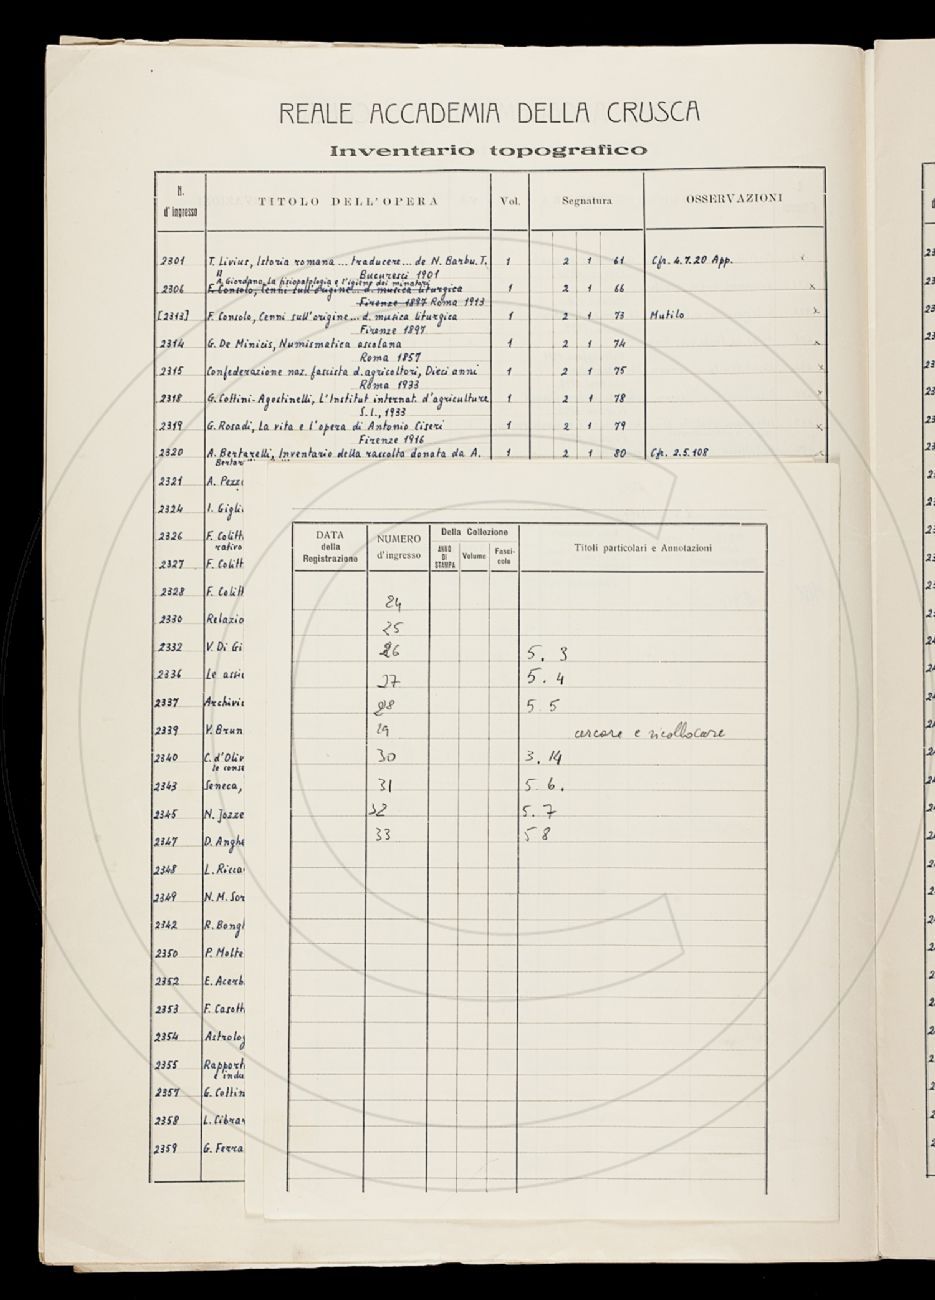 REALE ACCADEMIA DELLA CRUSCA
Inventario topografico
N. d'ingresso TITOLO DELL'OPERA Vol. Segnatura OSSERVAZIONI
2301 T. Livius, Istoria romana ... traducere ... de N. Barbu. T. 1 2 1 61 Cfr. 4.7.20 App.
II Bucuresci 1901
A. Giordano, La fisiopatologia e l'igiene dei minatori
2306 F. Consolo, Cenni sull'origine ... d. musica liturgica 1 2 1 66
Firenze 1897 Roma 1913
[2313] F. Consolo, Cenni sull'origine ... d. musica liturgica 1 2 1 73 Mutilo
Firenze 1897
2314 G. De Minicis, Numismatica ascolana 1 2 1 74
Roma 1857
2315 Confederazione naz. fascista d. agricoltori, Dieci anni 1 2 1 75
Roma 1933
2318 G. Cottini-Agostinelli, L'Institut internat. d'agriculture 1 2 1 78
S.l., 1933
2319 G. Rosadi, La vita e l'opera di Antonio Ciseri 1 2 1 79
Firenze 1916
2320 A. Bertarelli, Inventario della raccolta donata da A. 1 2 1 80 Cfr. 2.5.108
Bertar
2321 A. Pezzi
2324 I. Gigli
2326 F. Colitt
rativo
2327 F. Colitt
2328 F. Colitt
2330 Relazio
2332 V. Di Gi
2336 Le assi
2337 Archivi
2339 V. Brun
2340 C. d'Oliv
le conse
2343 Seneca,
2345 N. Jozze
2347 D. Anghe
2348 L. Ricca
2349 N. M. Sor
2342 R. Bongh
2350 P. Molte
2352 E. Acerb
2353 F. Casott
2354 Astrolog
2355 Rapport
e indu
2357 G. Cottin
2358 L. Cibrar
2359 G. Ferra
DATA della Registrazione NUMERO d'ingresso Della Collezione ANNO DI STAMPA Volume Fascicolo Titoli particolari e Annotazioni
24
25
26 5. 3
27 5. 4
28 5 5
29 cercare e ricollocare
30 3. 14
31 5 6.
32 5. 7
33 5 8